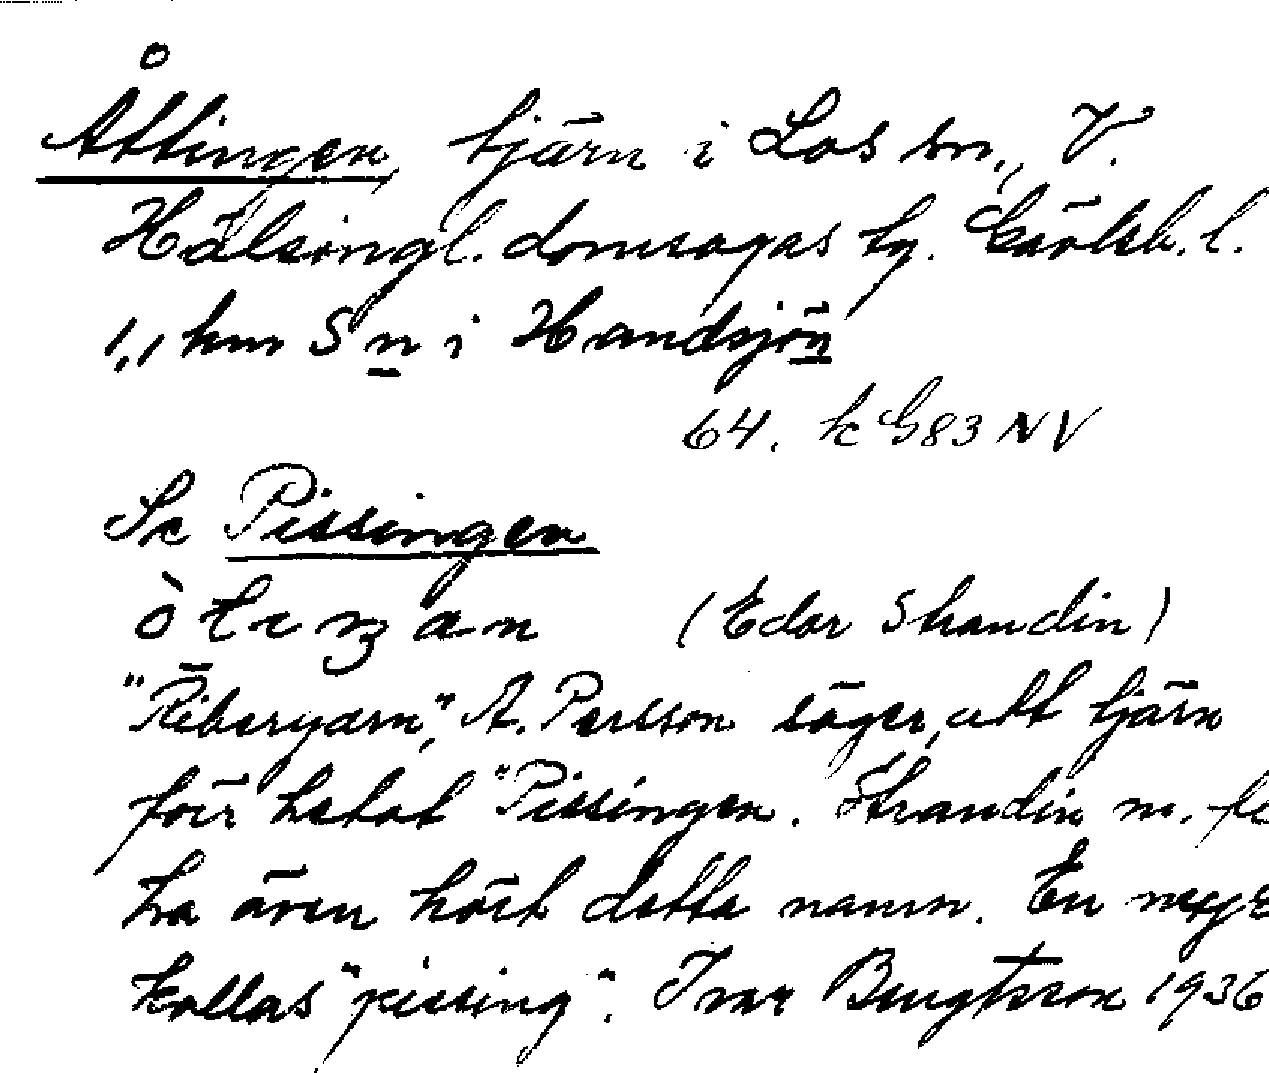 Åttingen, tjärn i Los sn, V.
Hälsingl. domsagas tg. Gävleb. l.
1,1 km S n i Handsjön
64. k G83 NV
Se Pissingen
(Edor Strandin)
"Ribergarn", A. Persson säger, att tjärn
förr hetat "Pissingen. Strandin m. fl
ha även hört detta namn. En myr
kallas "pissing". Ivar Bengtsson 1936